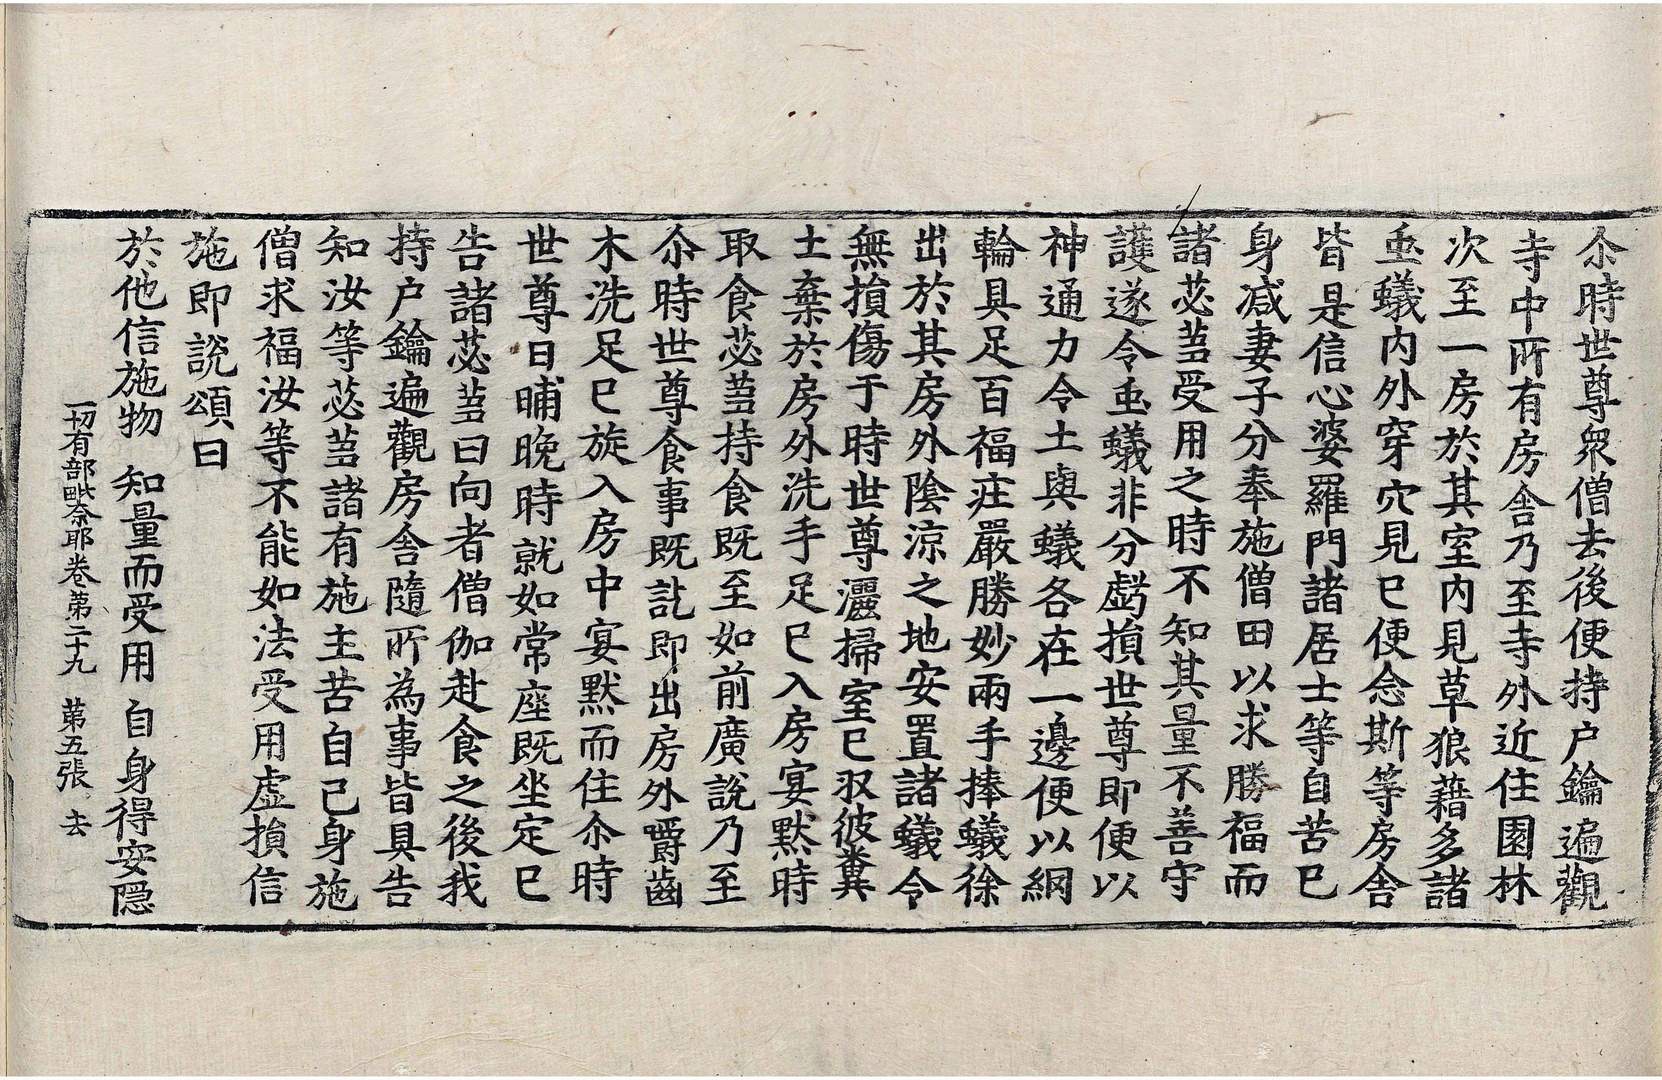 尒時世尊衆僧去後便持户鑰遍觀
寺中所有房舎乃至寺外近住園林
次至一房於其室内見草狼藉多諸
䖝蟻内外穿穴見已便念斯等房舎
皆是信心婆羅門諸居士等自苦己
身减妻子分奉施僧田以求勝福而
諸苾蒭受用之時不知其量不善守
護遂令䖝蟻非分虧損世尊即便以
神通力令土與蟻各在一邊便以網
輪具足百福莊嚴勝妙兩手捧蟻徐
出於其房外陰涼之地安置諸蟻令
無損傷于時世尊灑掃室已収彼糞
土棄於房外洗手足已入房宴默時
取食苾蒭持食既至如前廣說乃至
尒時世尊食事既訖即出房外嚼齒
木洗足已旋入房中宴默而住尒時
世尊日晡晚時就如常座既坐定已
告諸苾蒭曰向者僧伽赴食之後我
持户鑰遍觀房舎隨所為事皆具告
知汝等苾蒭諸有施主苦自己身施
僧求福汝等不能如法受用虛損信
施即說頌曰
於他信施物　知量而受用　自身得安隠
一切有部毗奈耶卷第二十九　第五張　去